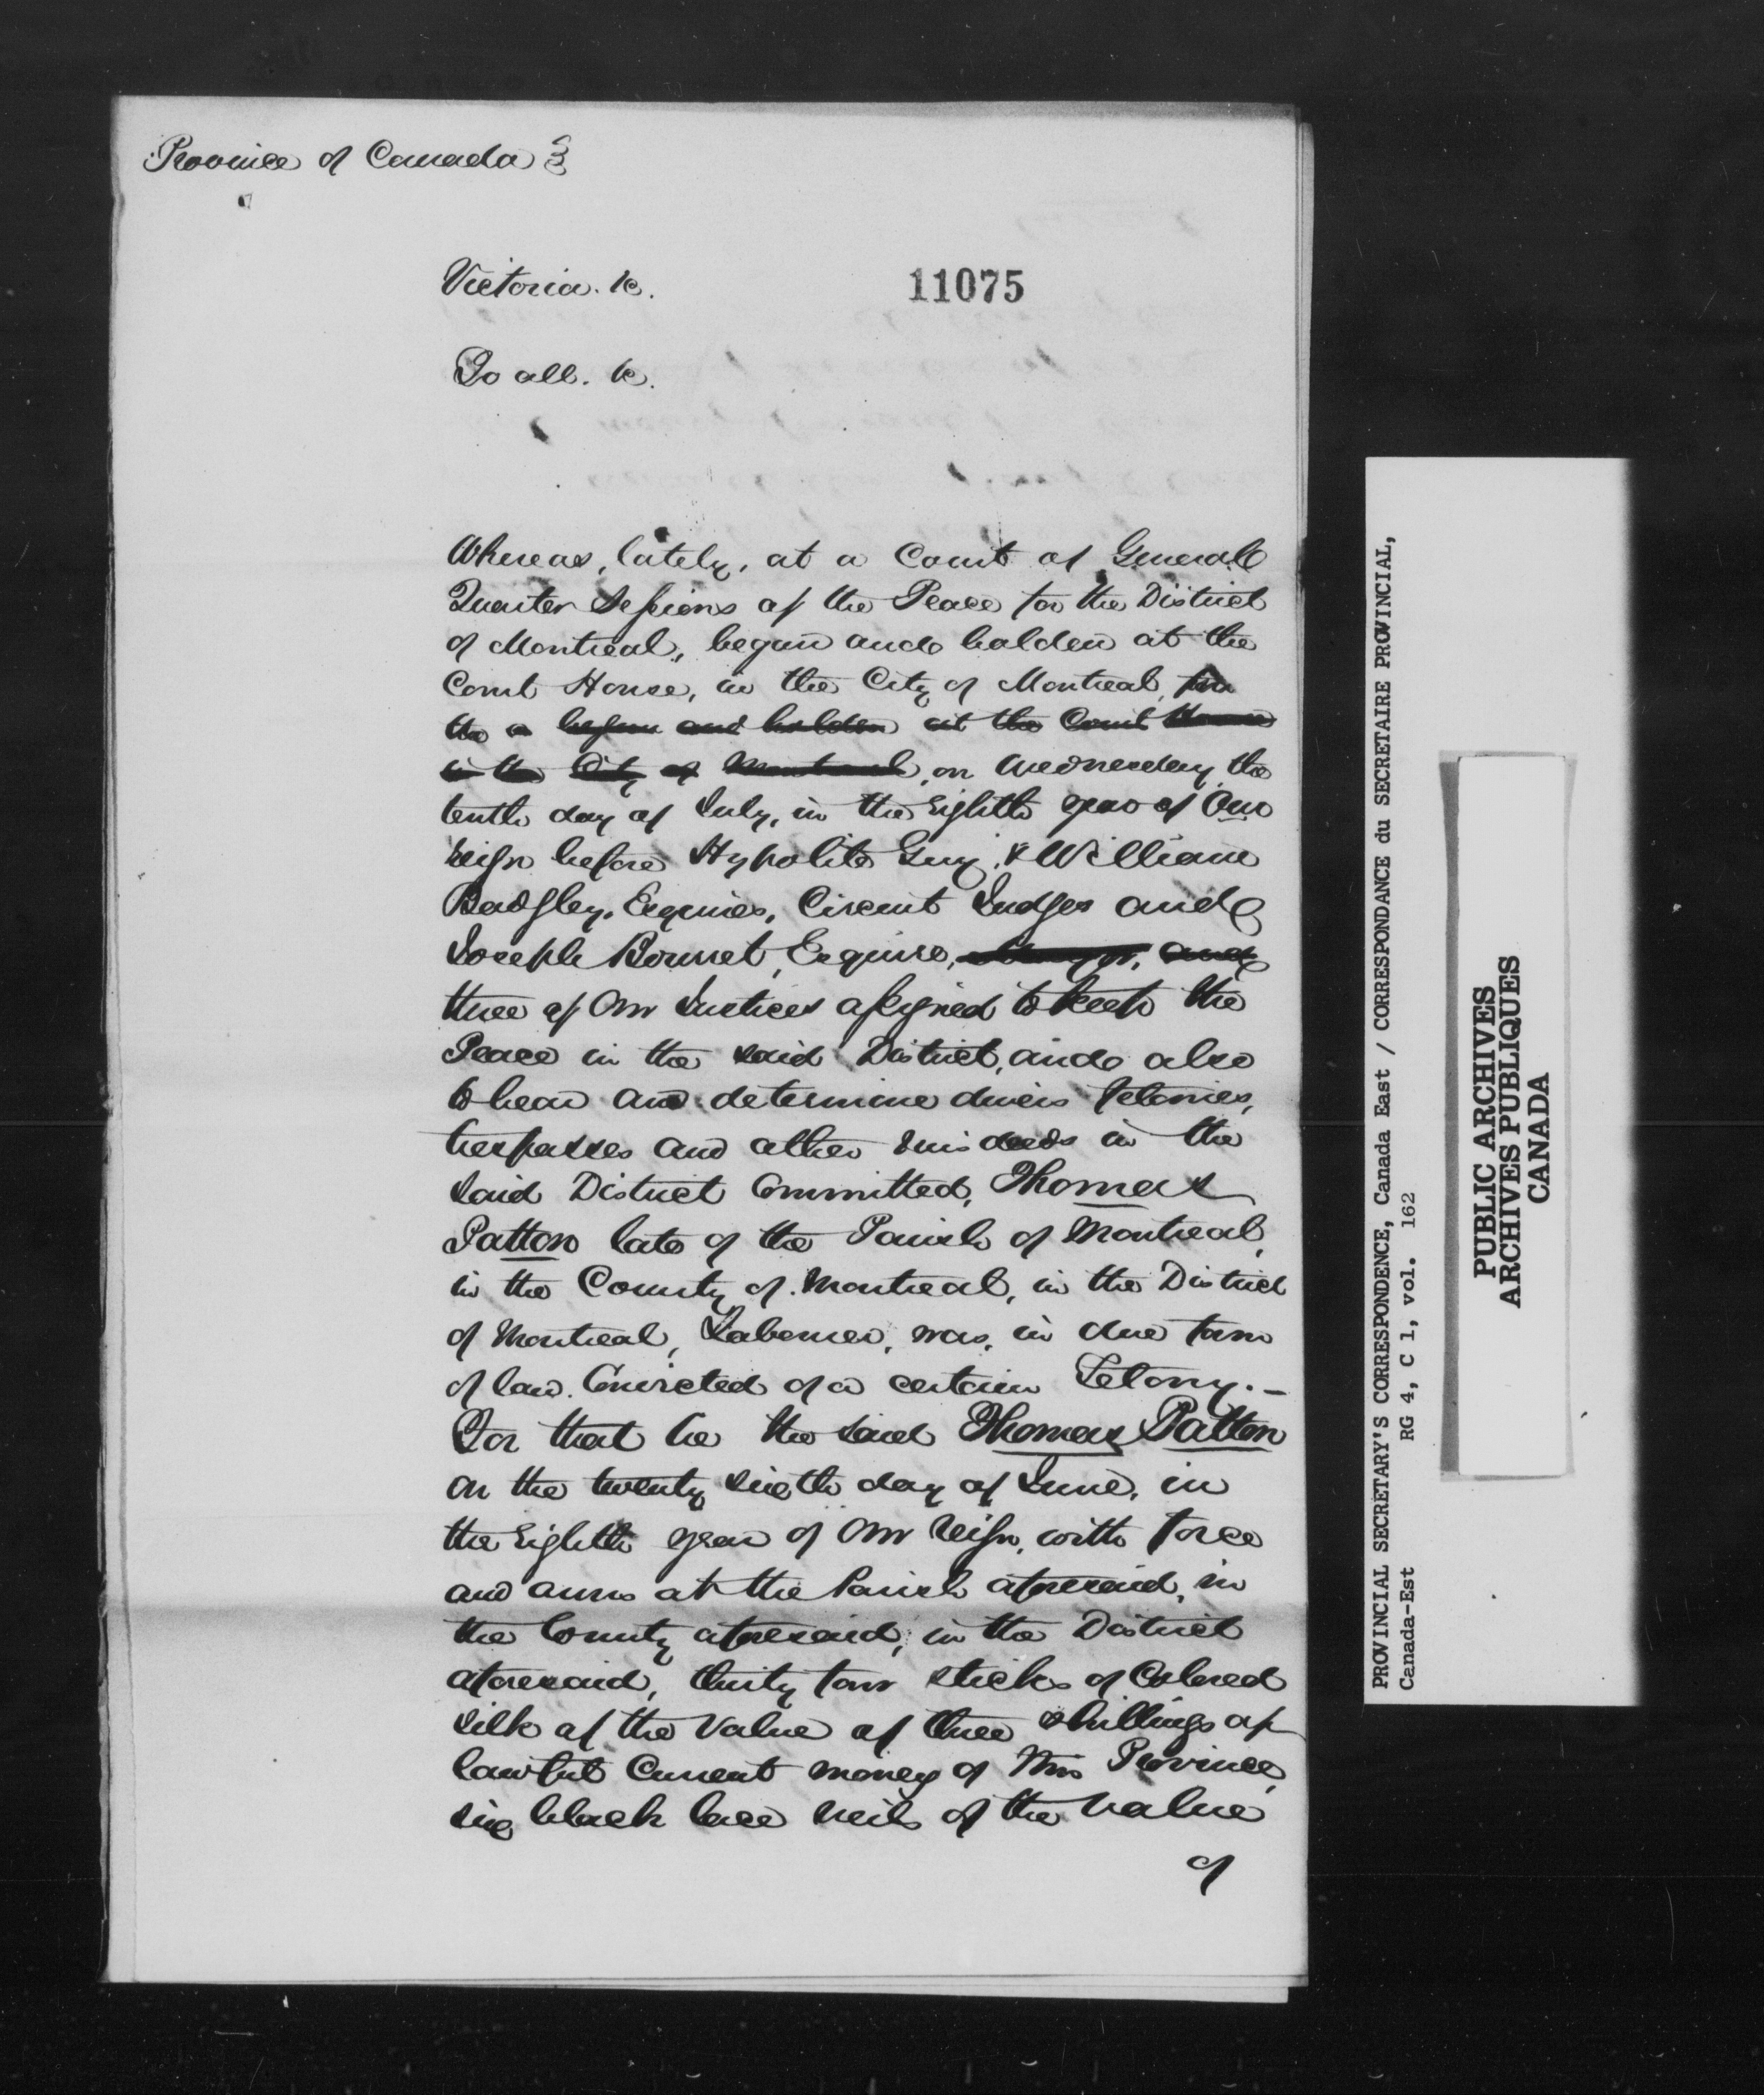 Province of Canada
Victoria. &c.
11075
To all. &c.
Whereas, lately, at a Court of General
Quarter Sessions of the Peace for the District
of Montreal, begun and holden at the
Court House, in the City of Montreal,
the a begun and holden at the Court House
in the City of Montreal, on Wednesday the
tenth day of July, in the Eighth year of Our
reign before Hypolite Guy, & William
Badgley, Esquires, Circuit Judges and
Joseph Bournet, Esquire, and
three of Our Justices assigned to keep the
Peace in the said District, and also
to hear and determine divers felonies,
trespasses and other misdeeds in the
said District Committed, Thomas
Patton late of the Parish of Montreal,
in the County of Montreal, in the District
of Montreal, Laborer, was, in due form
of law. Convicted of a certain Felony. –
For that he the said Thomas Patton
on the twenty sixth day of June, in
the Eighth year of Our reign, with force
and arms at the Parish aforesaid, in
the County aforesaid, in the District
aforesaid, thirty four sticks of Colored
silk of the value of three shillings of
lawful Current money of this Province,
six black lace veils of the value
of
PROVINCIAL SECRETARY'S CORRESPONDENCE, Canada East / CORRESPONDANCE du SECRETAIRE PROVINCIAL,
Canada-Est RG 4, C 1, vol. 162
PUBLIC ARCHIVES
ARCHIVES PUBLIQUES
CANADA